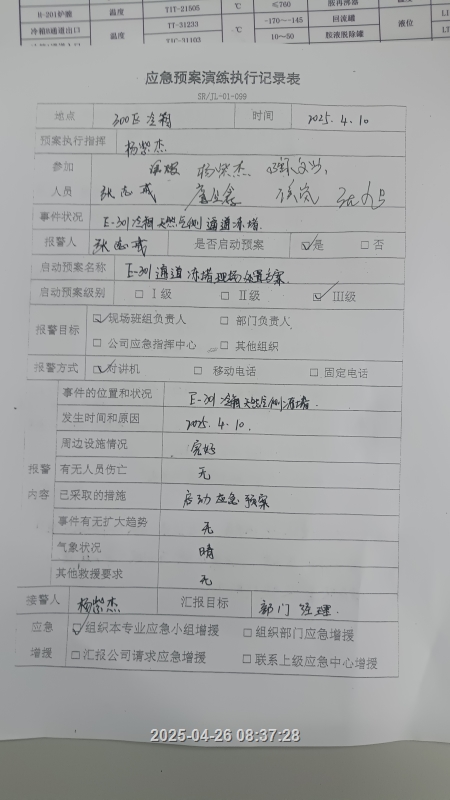 H-201炉膛 温度 TIT-21505 ℃ ≤760
冷箱B通道出口 温度 TT-31233 ℃ -170~-145 回流罐 液位
TIC-31103 10~50 胺液脱除罐
应急预案演练执行记录表
SR/JL-01-099
地点 300区冷箱 时间 2025.4.10
预案执行指挥 杨紫杰
参加 杨紫杰
人员 张志成
事件状况 E-301冷箱天然气侧通道冻堵
报警人 张志成 是否启动预案 ☑是 □否
启动预案名称 E-301通道冻堵现场处置方案
启动预案级别 □Ⅰ级 □Ⅱ级 ☑Ⅲ级
报警目标 ☑现场班组负责人 □部门负责人
□公司应急指挥中心 □其他组织
报警方式 ☑对讲机 □移动电话 □固定电话
事件的位置和状况 E-301冷箱天然气侧冻堵.
发生时间和原因 2025.4.10.
周边设施情况 完好
报警 有无人员伤亡 无
内容 已采取的措施 启动应急预案
事件有无扩大趋势 无
气象状况 晴
其他救援要求 无
接警人 杨紫杰 汇报目标 部门经理.
应急 ☑组织本专业应急小组增援 □组织部门应急增援
增援 □汇报公司请求应急增援 □联系上级应急中心增援
2025-04-26 08:37:28